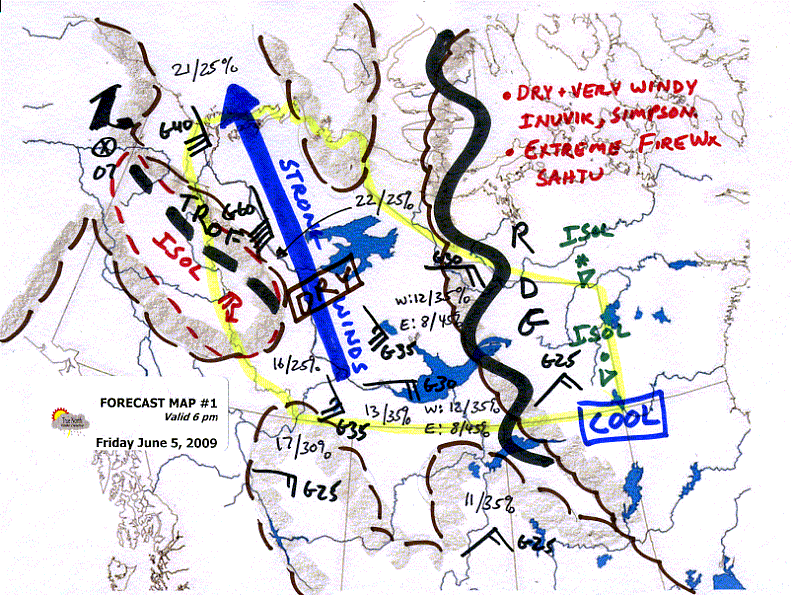 21/25%
• DRY + VERY WINDY
INUVIK, SIMPSON.
• EXTREME FIREWX
SAHTU
L
G40
07
STRONG
WINDS
TROF
G60
22/25%
ISOL
R
ISOL
G30
DRY
D
W: 12/35%
E: 8/45%
G
ISOL
G35
16/25%
G25
G30
FORECAST MAP #1
Valid 6 pm
Friday June 5, 2009
13/35%
W: 12/35%
E: 8/45%
COOL
G35
17/30%
G25
11/35%
G25